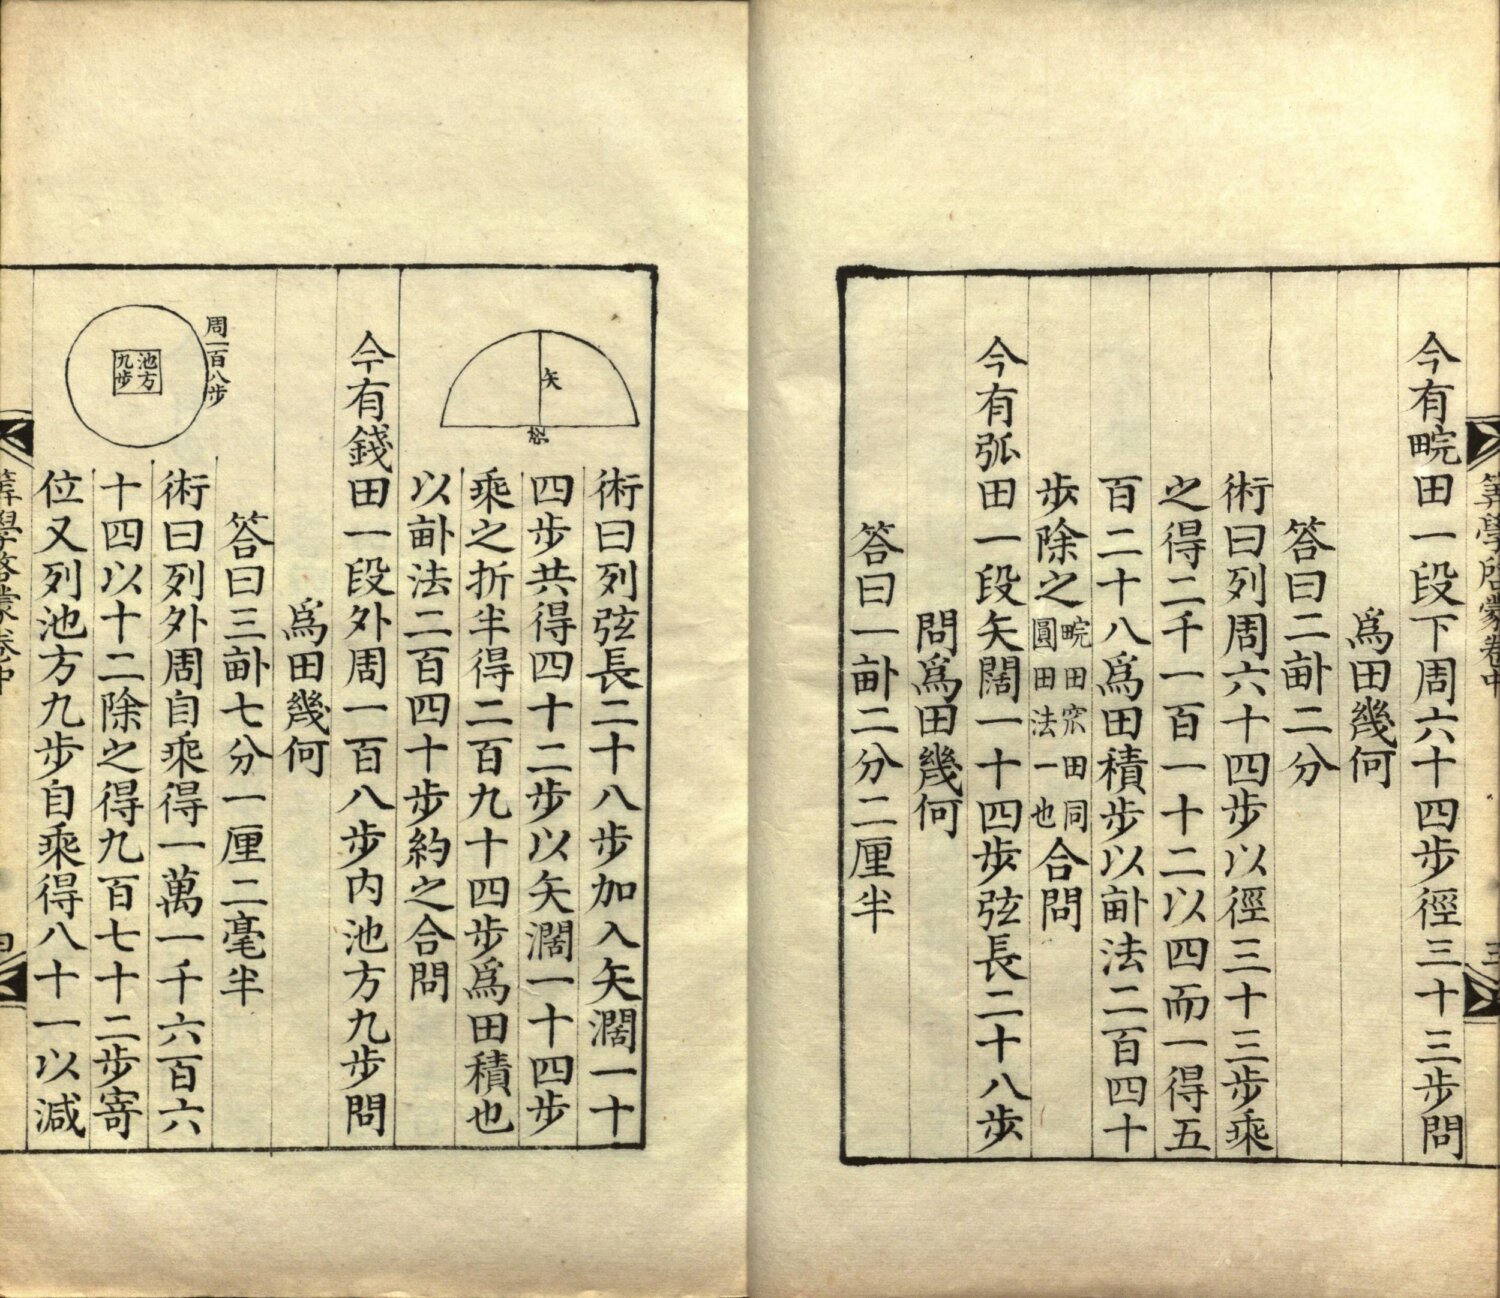 算學啓蒙卷中
三
今有畹田一段下周六十四步徑三十三步問
爲田幾何
答曰二畝二分
術曰列周六十四步以徑三十三步乘
之得二千一百一十二以四而一得五
百二十八爲田積步以畝法二百四十
步除之畹田窊田同圓田法一也合問
今有弧田一段矢闊一十四步弦長二十八步
問爲田幾何
答曰一畝二分二厘半
矢
弦
術曰列弦長二十八步加入矢濶一十
四步共得四十二步以矢濶一十四步
乘之折半得二百九十四步爲田積也
以畝法二百四十步約之合問
今有錢田一段外周一百八步內池方九步問
爲田幾何
答曰三畝七分一厘二毫半
周一百八步
池方九步
術曰列外周自乘得一萬一千六百六
十四以十二除之得九百七十二步寄
位又列池方九步自乘得八十一以減
算學啓蒙卷中
四